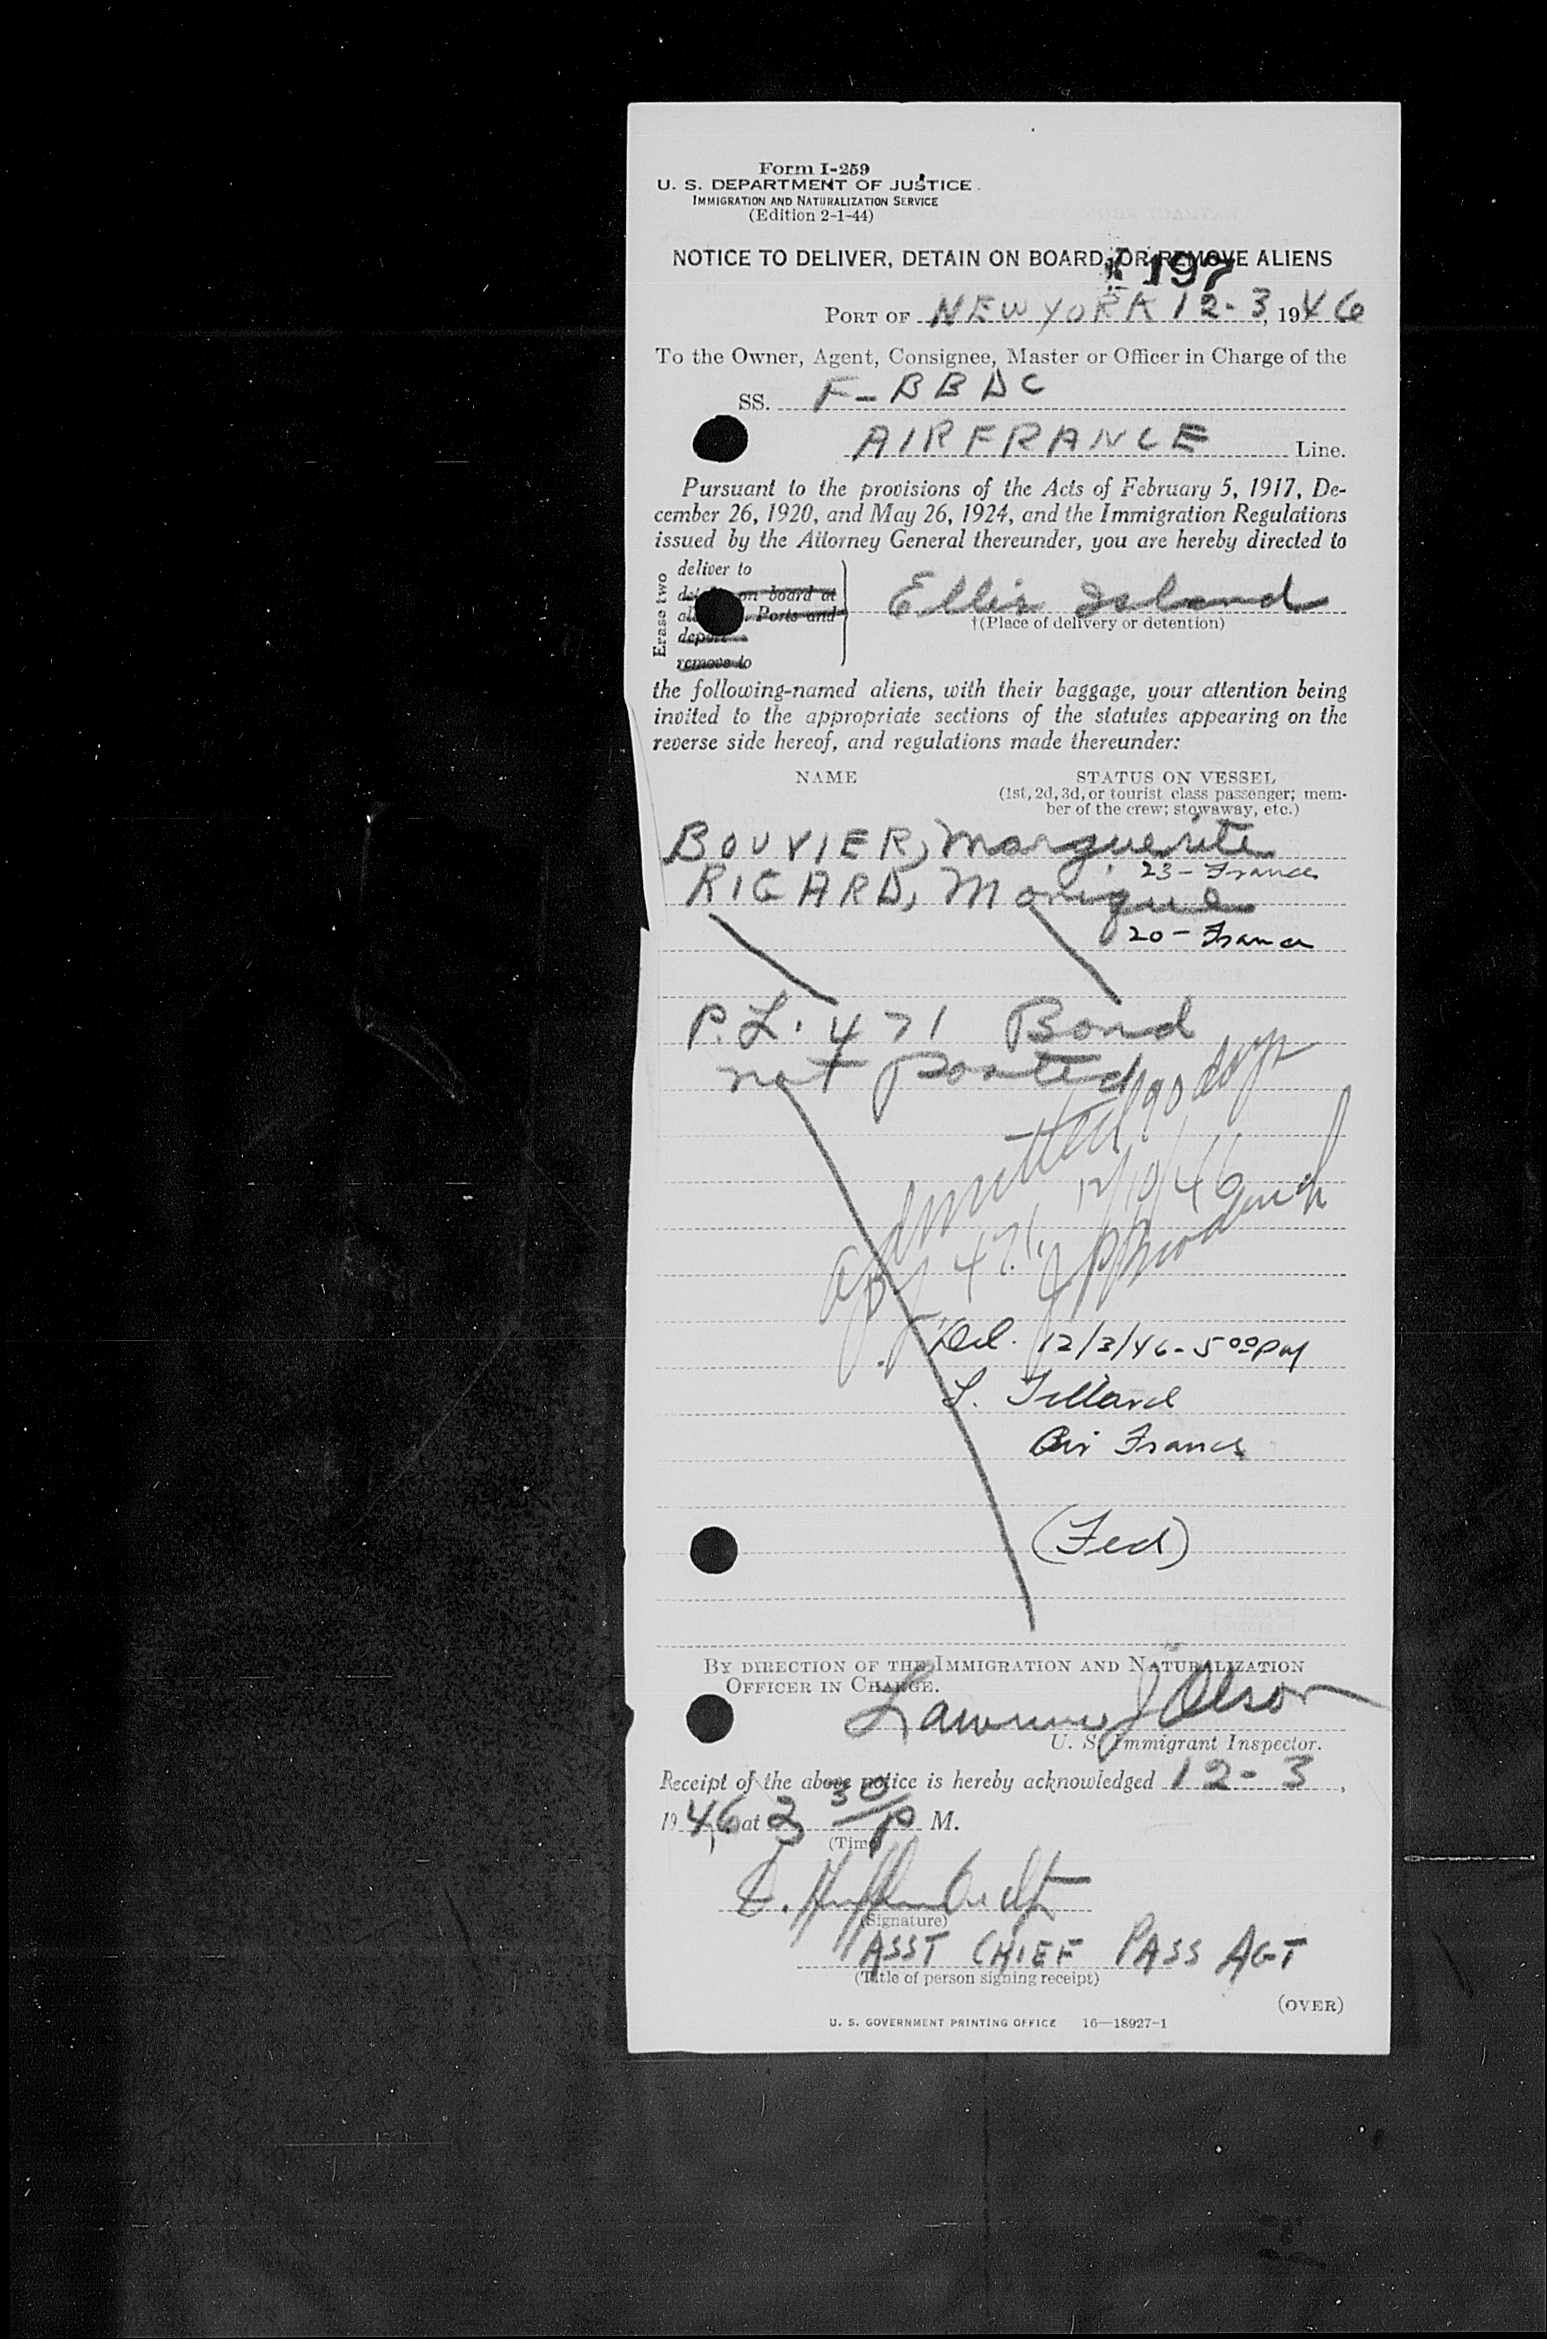 Form I-259
U. S. DEPARTMENT OF JUSTICE
IMMIGRATION AND NATURALIZATION SERVICE
(Edition 2-1-44)
NOTICE TO DELIVER, DETAIN ON BOARD, OR REMOVE ALIENS
197
PORT OF NEW YORK 12-3, 1946
To the Owner, Agent, Consignee, Master or Officer in Charge of the
SS. F-BBDC
AIR FRANCE Line.
Pursuant to the provisions of the Acts of February 5, 1917, De-
cember 26, 1920, and May 26, 1924, and the Immigration Regulations
issued by the Attorney General thereunder, you are hereby directed to
Erase two
deliver to
on board at
Ports and
remove to
Ellis Island
†(Place of delivery or detention)
the following-named aliens, with their baggage, your attention being
invited to the appropriate sections of the statutes appearing on the
reverse side hereof, and regulations made thereunder:
NAME STATUS ON VESSEL
(1st, 2d, 3d, or tourist class passenger; mem-
ber of the crew; stowaway, etc.)
BOUVIER, Marguerite
23 - France
RIGARD, Monique
20 - France
P.L. 471 Bond
not posted
Admitted 90 days
12/10/46
P.L. 471
Del. 12/3/46 - 5 00 PM
Air France
(Fed)
BY DIRECTION OF THE IMMIGRATION AND NATURALIZATION
OFFICER IN CHARGE.
Lawrence J Olson
U. S. Immigrant Inspector.
Receipt of the above notice is hereby acknowledged 12-3,
1946, at 3 30 P M.
(Time)
(Signature)
ASST CHIEF PASS AGT
(Title of person signing receipt)
(OVER)
U. S. GOVERNMENT PRINTING OFFICE 16—18927-1